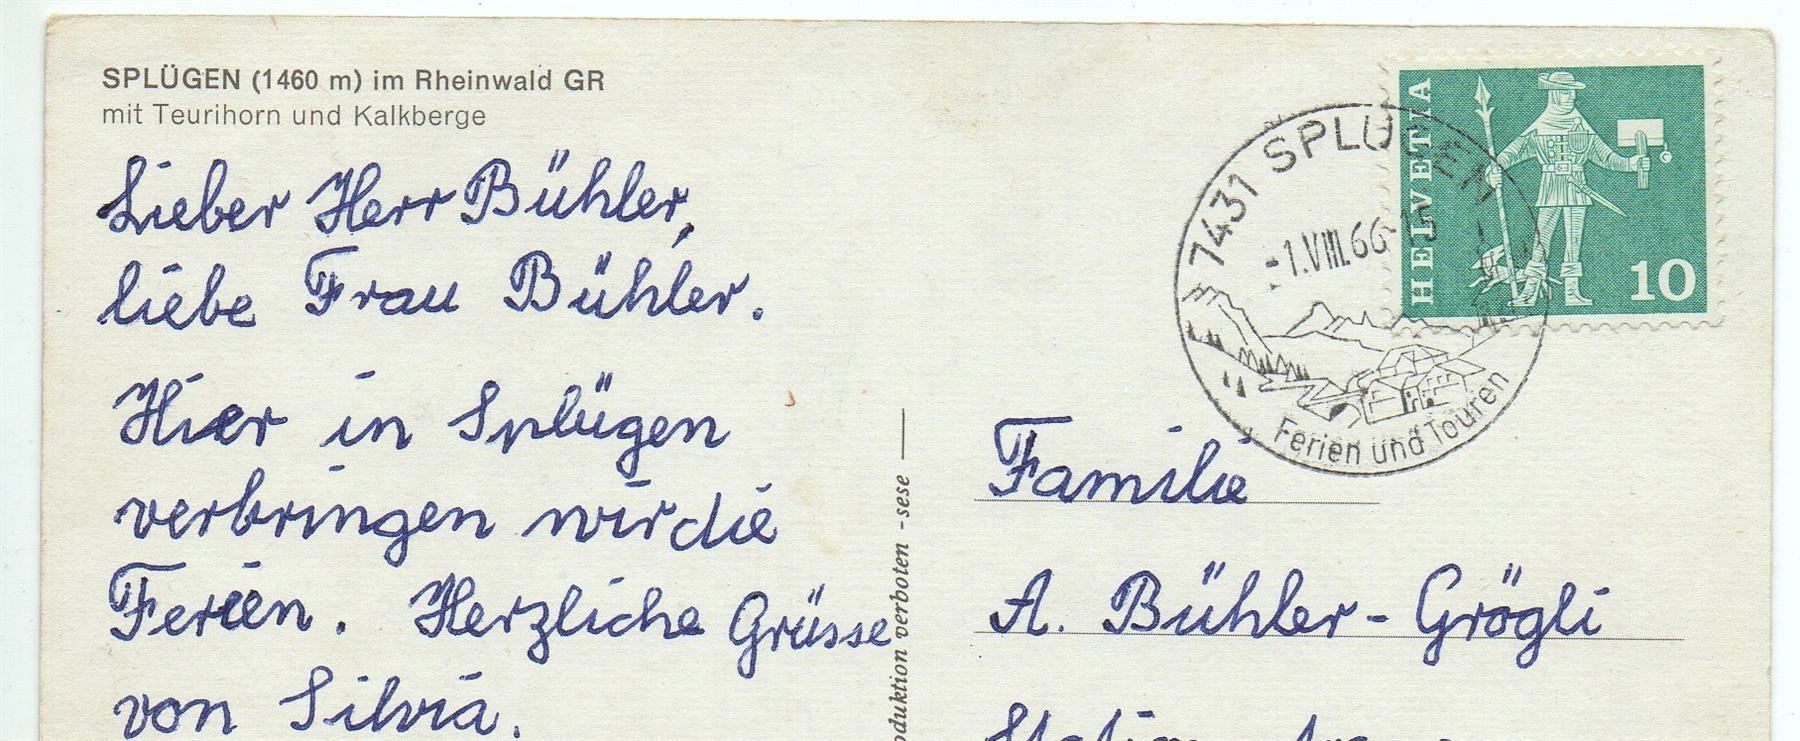 SPLÜGEN (1460 m) im Rheinwald GR
mit Teurihorn und Kalkberge
Lieber Herr Bühler,
liebe Frau Bühler.
Hier in Splügen
verbringen wir die
Ferien. Herzliche Grüsse
von Silvia.
oduktion verboten - sese
7431 SPLÜGEN
-1.VIII.66-15
Ferien und Touren
HELVETIA
10
Familie
A. Bühler-Grögli